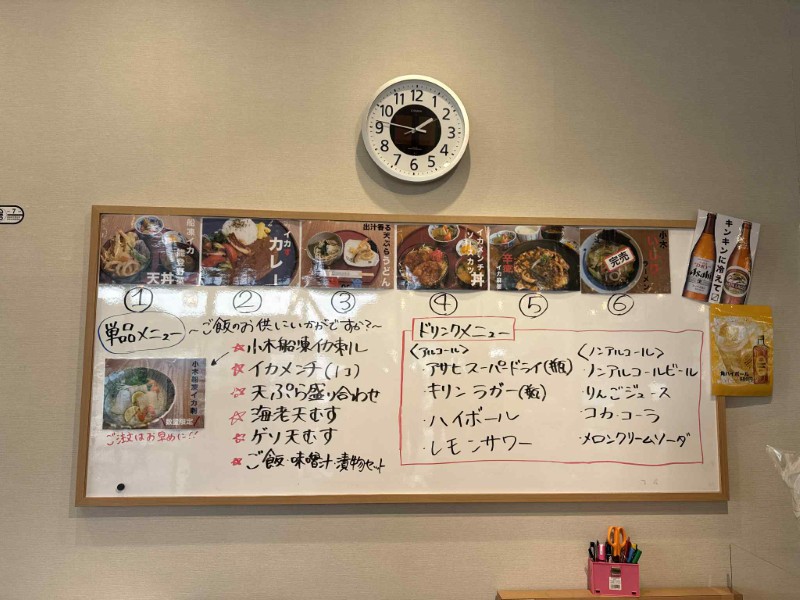 12
1
2
3
4
5
6
7
8
9
10
11
7
船凍イカ
天丼
イカす
カレー
出汁香る
天ぷらうどん
イカメンチ
ソースカツ
丼
辛風
イカ
小木
ラーメン
完売
① ② ③ ④ ⑤ ⑥
キンキンに冷えて〼
Asahi
KIRIN
角ハイボール
単品メニュー
~ご飯のお供にいかがですか?~
小木船凍イカ刺し
イカメンチ(1コ)
天ぷら盛り合わせ
海老天むす
ゲソ天むす
ご飯・味噌汁・漬物セット
小木船凍イカ刺
数量限定
ご注文はお早めに!!
ドリンクメニュー
<アルコール>
・アサヒスーパードライ(瓶)
・キリンラガー(瓶)
・ハイボール
・レモンサワー
<ノンアルコール>
・ノンアルコールビール
・りんごジュース
・コカ・コーラ
・メロンクリームソーダ